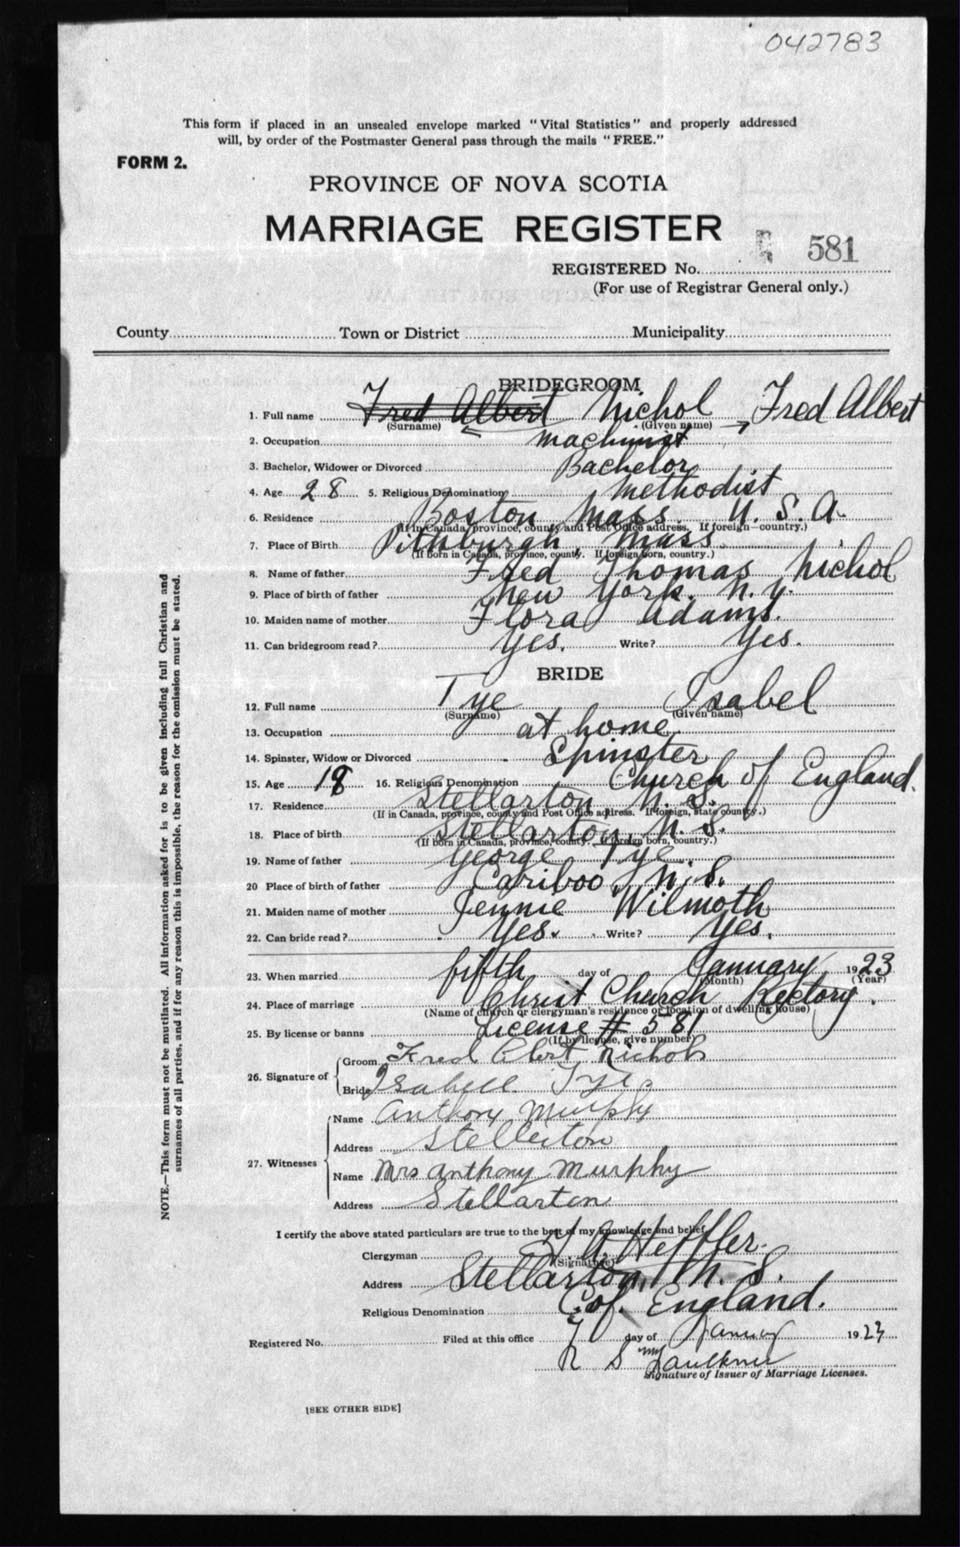 042783
This form if placed in an unsealed envelope marked "Vital Statistics" and properly addressed
will, by order of the Postmaster General pass through the mails "FREE."
FORM 2.
PROVINCE OF NOVA SCOTIA
MARRIAGE REGISTER
581
REGISTERED No.
(For use of Registrar General only.)
County Town or District Municipality
BRIDEGROOM
1. Full name Fred Albert Nichol → Fred Albert
(Surname) (Given name)
2. Occupation Machinist
3. Bachelor, Widower or Divorced Bachelor
4. Age 28 5. Religious Denomination Methodist
6. Residence Boston Mass. U. S. A.
(If in Canada, province, county and Post Office address. If foreign—country.)
7. Place of Birth Pittsburgh, Mass.
(If born in Canada, province, county. If foreign born, country.)
8. Name of father Fred Thomas Nichol
9. Place of birth of father New York. N. Y.
10. Maiden name of mother Flora Adams.
11. Can bridegroom read? Yes. Write? Yes.
BRIDE
12. Full name Tye Isabel
(Surname) (Given name)
13. Occupation at home
14. Spinster, Widow or Divorced Spinster
15. Age 18 16. Religious Denomination Church of England.
17. Residence Stellarton N. S.
(If in Canada, province, county and Post Office address. If foreign, state country.)
18. Place of birth Stellarton, N. S.
(If born in Canada, province, county. If foreign born, country.)
19. Name of father George Tye
20 Place of birth of father Cariboo N. S.
21. Maiden name of mother Jennie Wilmoth
22. Can bride read? Yes. Write? Yes.
23. When married fifth day of January 1923
(Month) (Year)
24. Place of marriage Christ Church Rectory.
(Name of church or clergyman's residence or location of dwelling house)
25. By license or banns License # 581
(If by license, give number)
26. Signature of Groom Fred Elbert Nichols
Bride Isabell Tye.
27. Witnesses Name Anthony Murphy
Address Stellerton
Name Mrs Anthony Murphy
Address Stellarton
I certify the above stated particulars are true to the best of my knowledge and belief.
Clergyman A. Heffler.
(Signature)
Address Stellarton, N. S.
Religious Denomination C. of. England.
Registered No. Filed at this office 7 day of January 1923
R S Faulkner
Signature of Issuer of Marriage Licenses.
[SEE OTHER SIDE]
NOTE.—This form must not be mutilated. All information asked for is to be given including full Christian and
surnames of all parties, and if for any reason this is impossible, the reason for the omission must be stated.